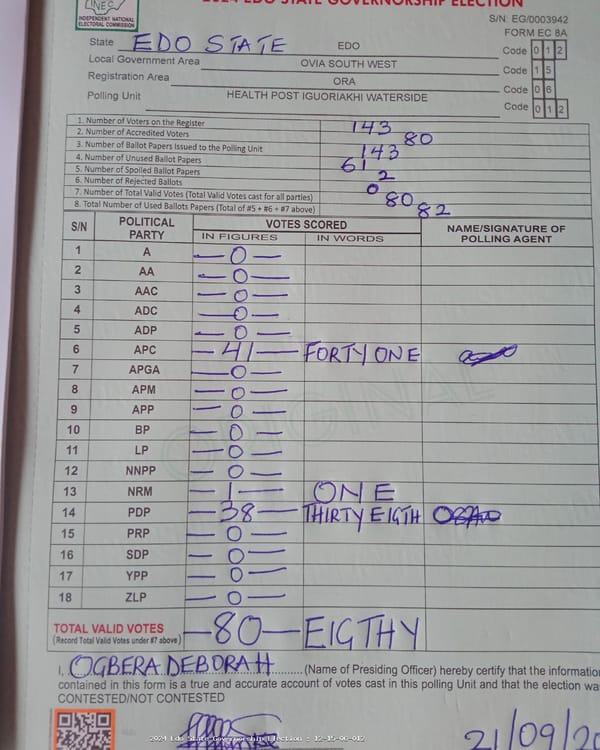 2024 EDO STATE GOVERNORSHIP ELECTION
INEC
INDEPENDENT NATIONAL
ELECTORAL COMMISSION
S/N: EG/0003942
FORM EC 8A
State EDO STATE EDO Code 0 1 2
Local Government Area OVIA SOUTH WEST Code 1 5
Registration Area ORA Code 0 6
Polling Unit HEALTH POST IGUORIAKHI WATERSIDE Code 0 1 2
1. Number of Voters on the Register 143
2. Number of Accredited Voters 80
3. Number of Ballot Papers Issued to the Polling Unit 143
4. Number of Unused Ballot Papers 61
5. Number of Spoiled Ballot Papers 2
6. Number of Rejected Ballots 0
7. Number of Total Valid Votes (Total Valid Votes cast for all parties) 80
8. Total Number of Used Ballots Papers (Total of #5 + #6 + #7 above) 82
S/N POLITICAL PARTY VOTES SCORED NAME/SIGNATURE OF POLLING AGENT
IN FIGURES IN WORDS
1 A — 0 —
2 AA — 0 —
3 AAC — 0 —
4 ADC — 0 —
5 ADP — 0 —
6 APC — 41 — FORTY ONE
7 APGA — 0 —
8 APM — 0 —
9 APP — 0 —
10 BP — 0 —
11 LP — 0 —
12 NNPP — 0 —
13 NRM — 1 — ONE
14 PDP — 38 — THIRTY EIGTH
15 PRP — 0 —
16 SDP — 0 —
17 YPP — 0 —
18 ZLP — 0 —
ORIGINAL
TOTAL VALID VOTES — 80 — EIGTHY
(Record Total Valid Votes under #7 above)
I, OGBERA DEBORAH (Name of Presiding Officer) hereby certify that the information
contained in this form is a true and accurate account of votes cast in this polling Unit and that the election wa
CONTESTED/NOT CONTESTED
2024 Edo State Governorship Election - 12-15-06-012
21/09/20